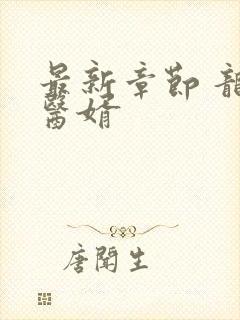 最新章節 龍
醫婿
唐聞生